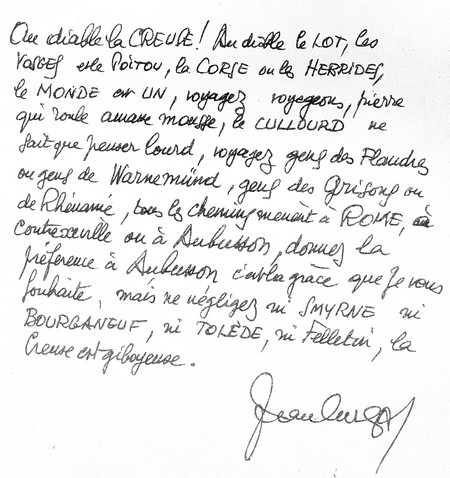 Au diable la CREUSE ! Au diable le LOT, les
VOSGES et le POITOU, la CORSE ou les HEBRIDES,
le MONDE est UN, voyagez voyageons, pierre
qui roule amasse mousse, le CULLOURD ne
fait que penser lourd, voyagez gens des Flandres
ou gens de Warnemünd, gens des Grisons ou
de Rhénanie, tous les chemins mènent à ROME, à
Contrexéville ou à Aubusson, donnez la
préférence à Aubusson c'est la grâce que je vous
souhaite, mais ne négligez ni SMYRNE ni
BOURGANEUF, ni TOLÈDE, ni Felletin, la
Creuse est giboyeuse.